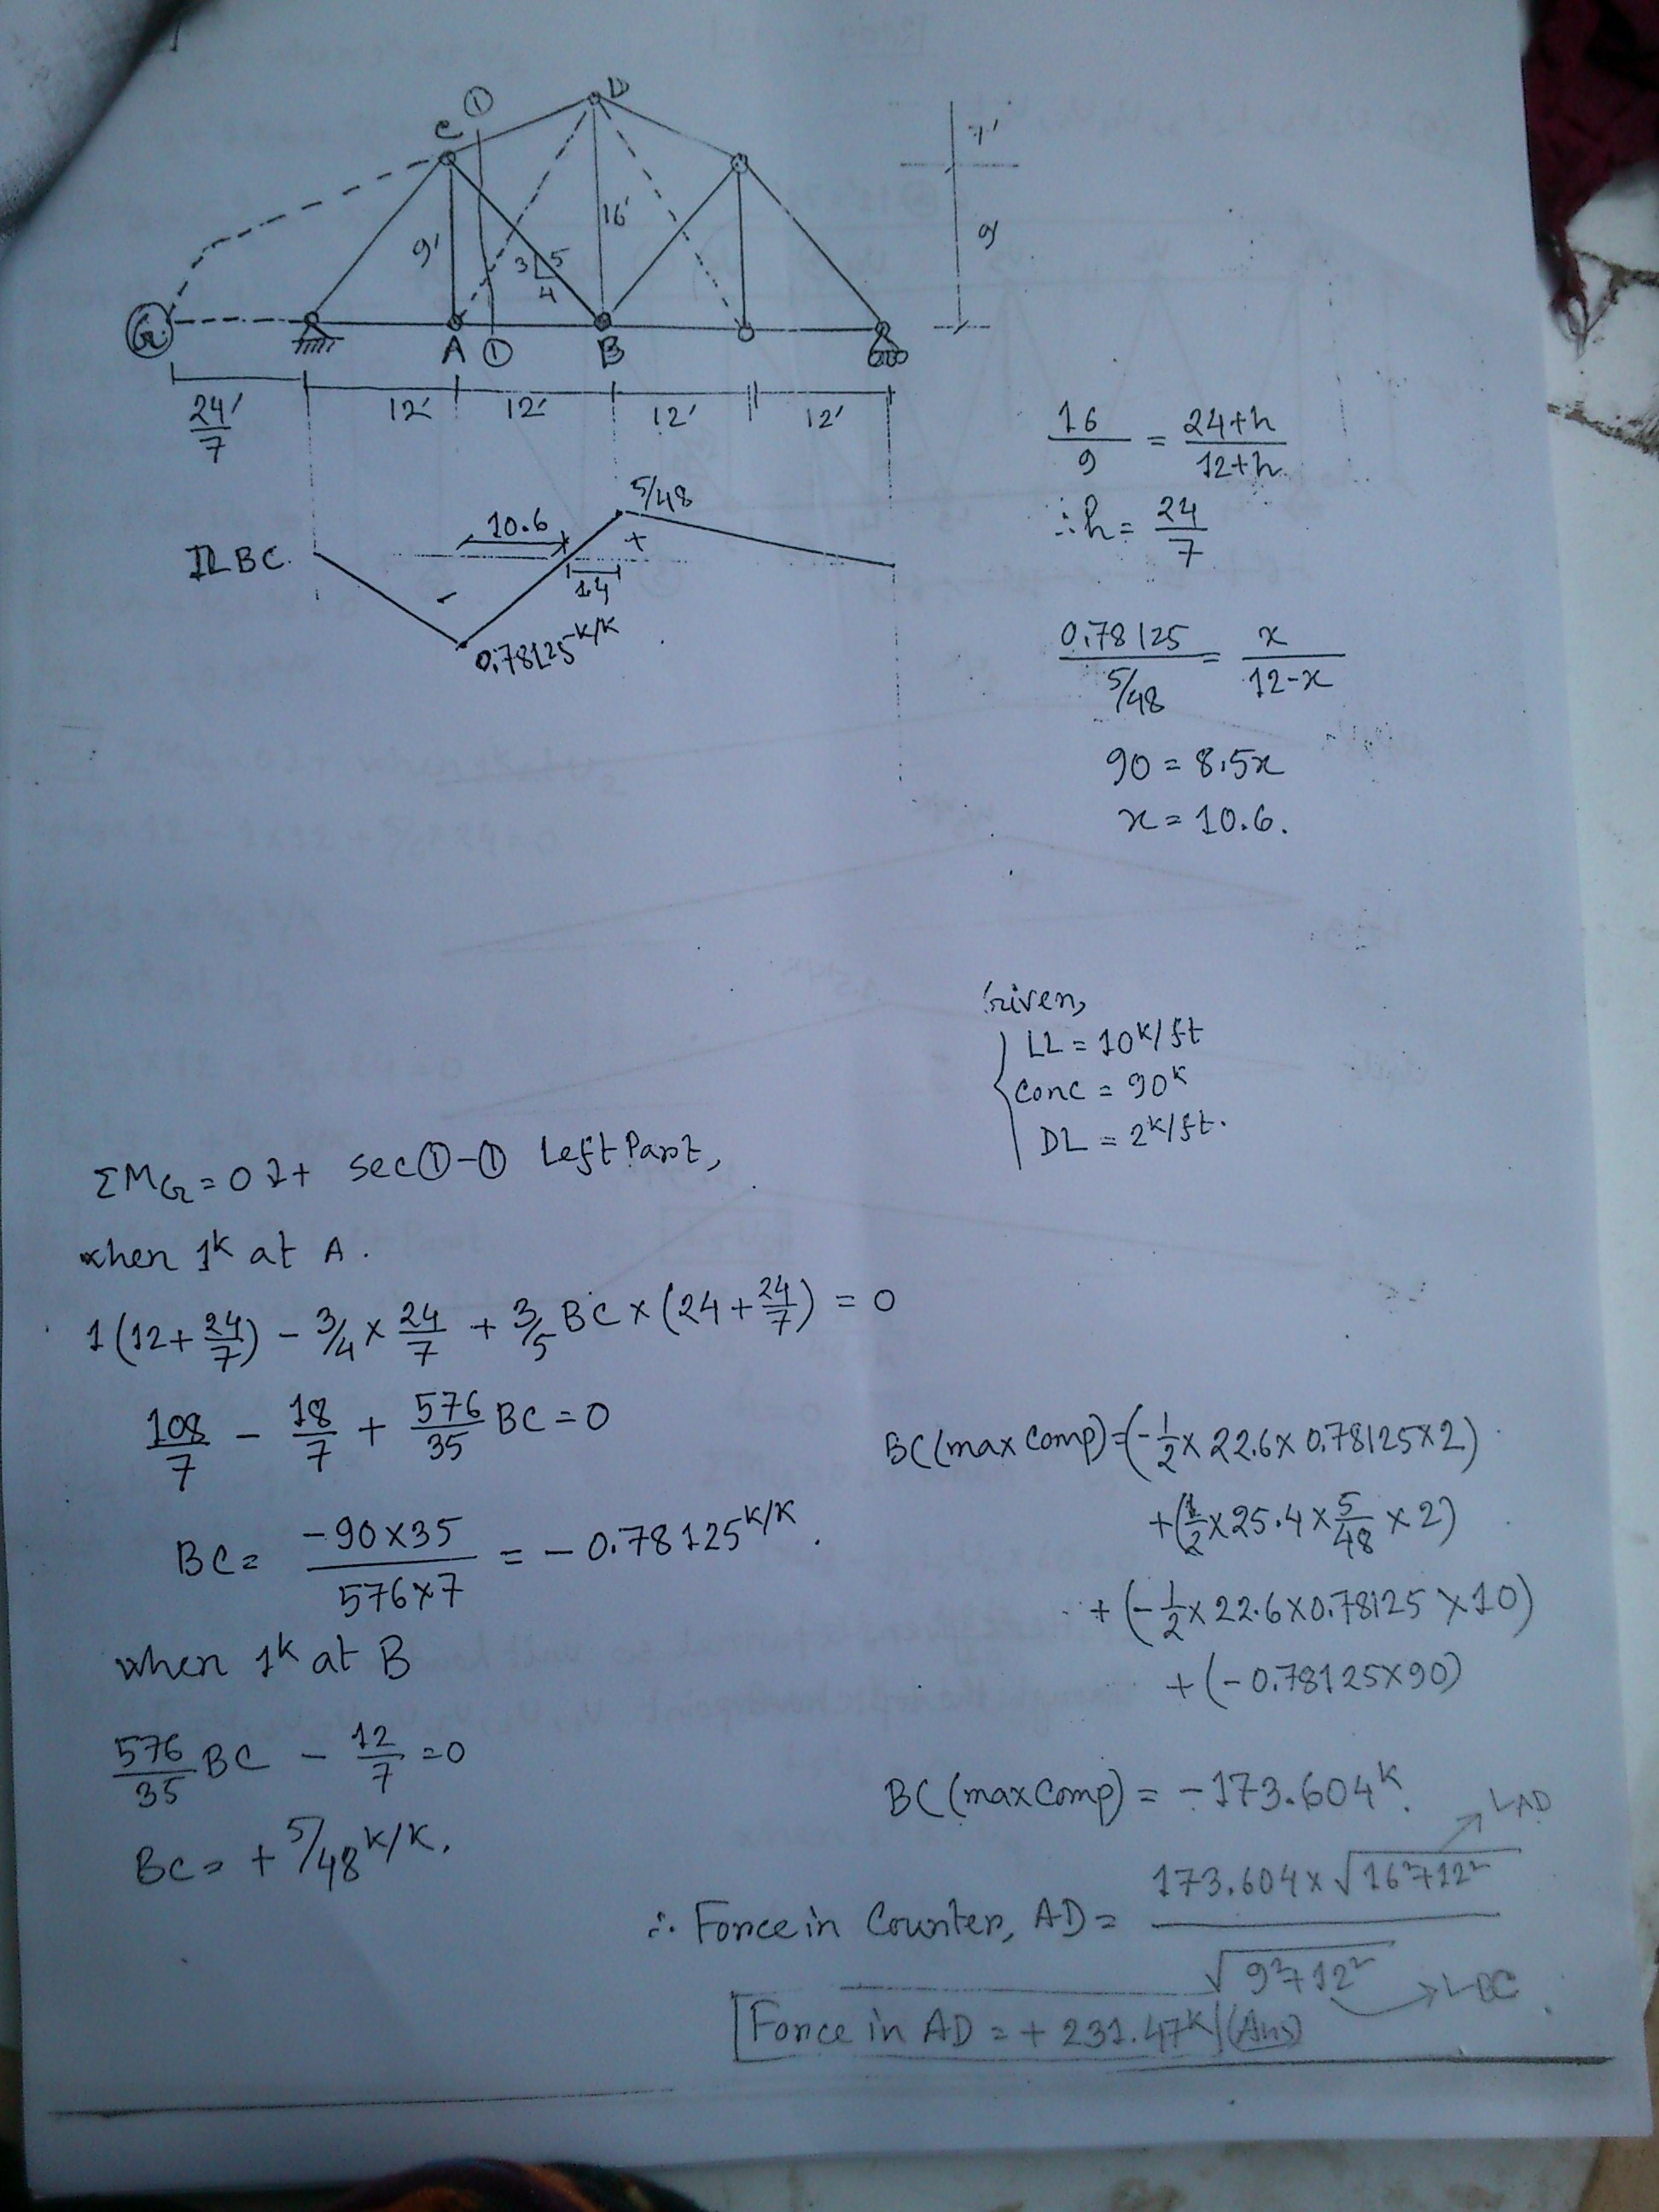 ①
D
C
7'
16'
9'
9'
3
5
4
G
A
①
B
24'/7
12'
12'
12'
12'
16/9 = (24+h)/(12+h)
∴ h = 24/7
IL BC.
10.6
5/48
+
1.4
-
0.78125 k/k
0.78125/(5/48) = x/(12-x)
90 = 8.5x
x = 10.6.
Given,
LL = 10 k/ft
Conc = 90 k
DL = 2 k/ft.
ΣM_G = 0 ↷+ sec ①-① Left Part,
when 1k at A.
1(12+24/7) - 3/4 × 24/7 + 3/5 BC × (24+24/7) = 0
108/7 - 18/7 + 576/35 BC = 0
BC = (-90×35)/(576×7) = -0.78125 k/k.
when 1k at B
576/35 BC - 12/7 = 0
BC = + 5/48 k/k.
BC (max Comp) = (-1/2 × 22.6 × 0.78125 × 2)
+ (1/2 × 25.4 × 5/48 × 2)
+ (-1/2 × 22.6 × 0.78125 × 10)
+ (-0.78125 × 90)
BC (max Comp) = -173.604 k.
∴ Force in Counter, AD = (173.604 × √(16²+12²))/√(9²+12²)
→ LAD
→ LBC
Force in AD = + 231.47 k (Ans)